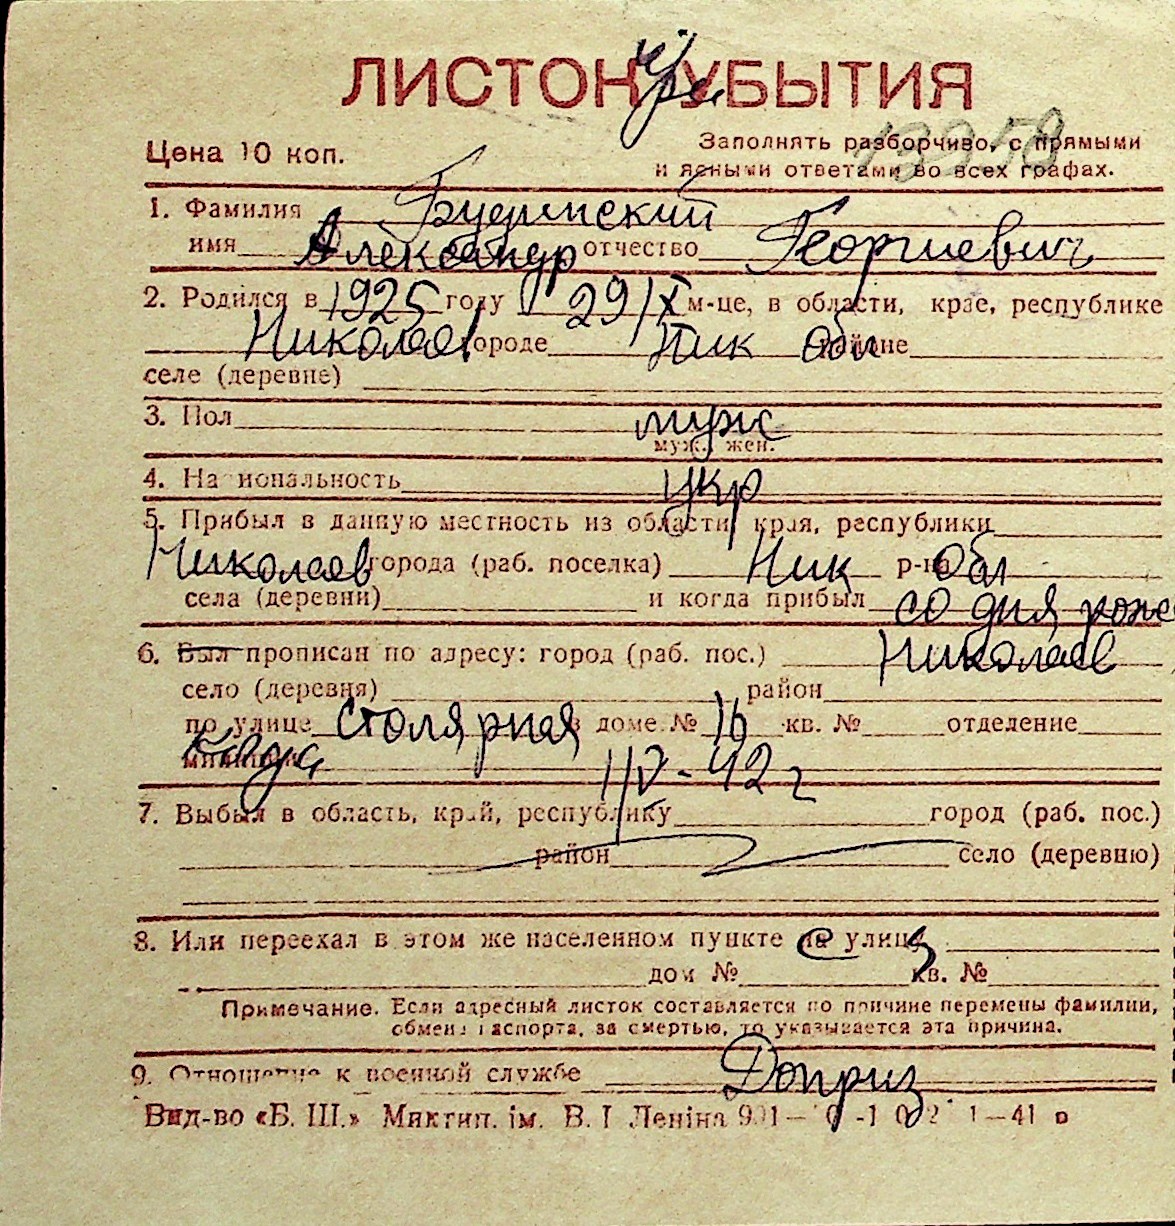 ЛИСТОК УБЫТИЯ
Цена 10 коп.
Заполнять разборчиво, с прямыми
и ясными ответами во всех графах.
13958
1. Фамилия Будинский
имя Александр отчество Георгиевич
2. Родился в 1925 году 29/X м-це, в области, крае, республике
Николаев городе Ник обл районе
селе (деревне)
3. Пол муж
муж., жен.
4. Национальность укр
5. Прибыл в данную местность из области, края, республики
Николаев города (раб. поселка) Ник р-на обл
села (деревни) и когда прибыл со дня рож
6. Был прописан по адресу: город (раб. пос.) Николаев
село (деревня) район
по улице Столярная в доме № 16 кв. № отделение
милиции
7. Выбыл в область, край, республику город (раб. пос.)
район село (деревню)
8. Или переехал в этом же населенном пункте на улицу
дом № кв. №
Примечание. Если адресный листок составляется по причине перемены фамилии,
обмена паспорта, за смертью, то указывается эта причина.
9. Отношение к военной службе Доприз
Вид-во «Б. Ш.» Миктип. ім. В. І Леніна